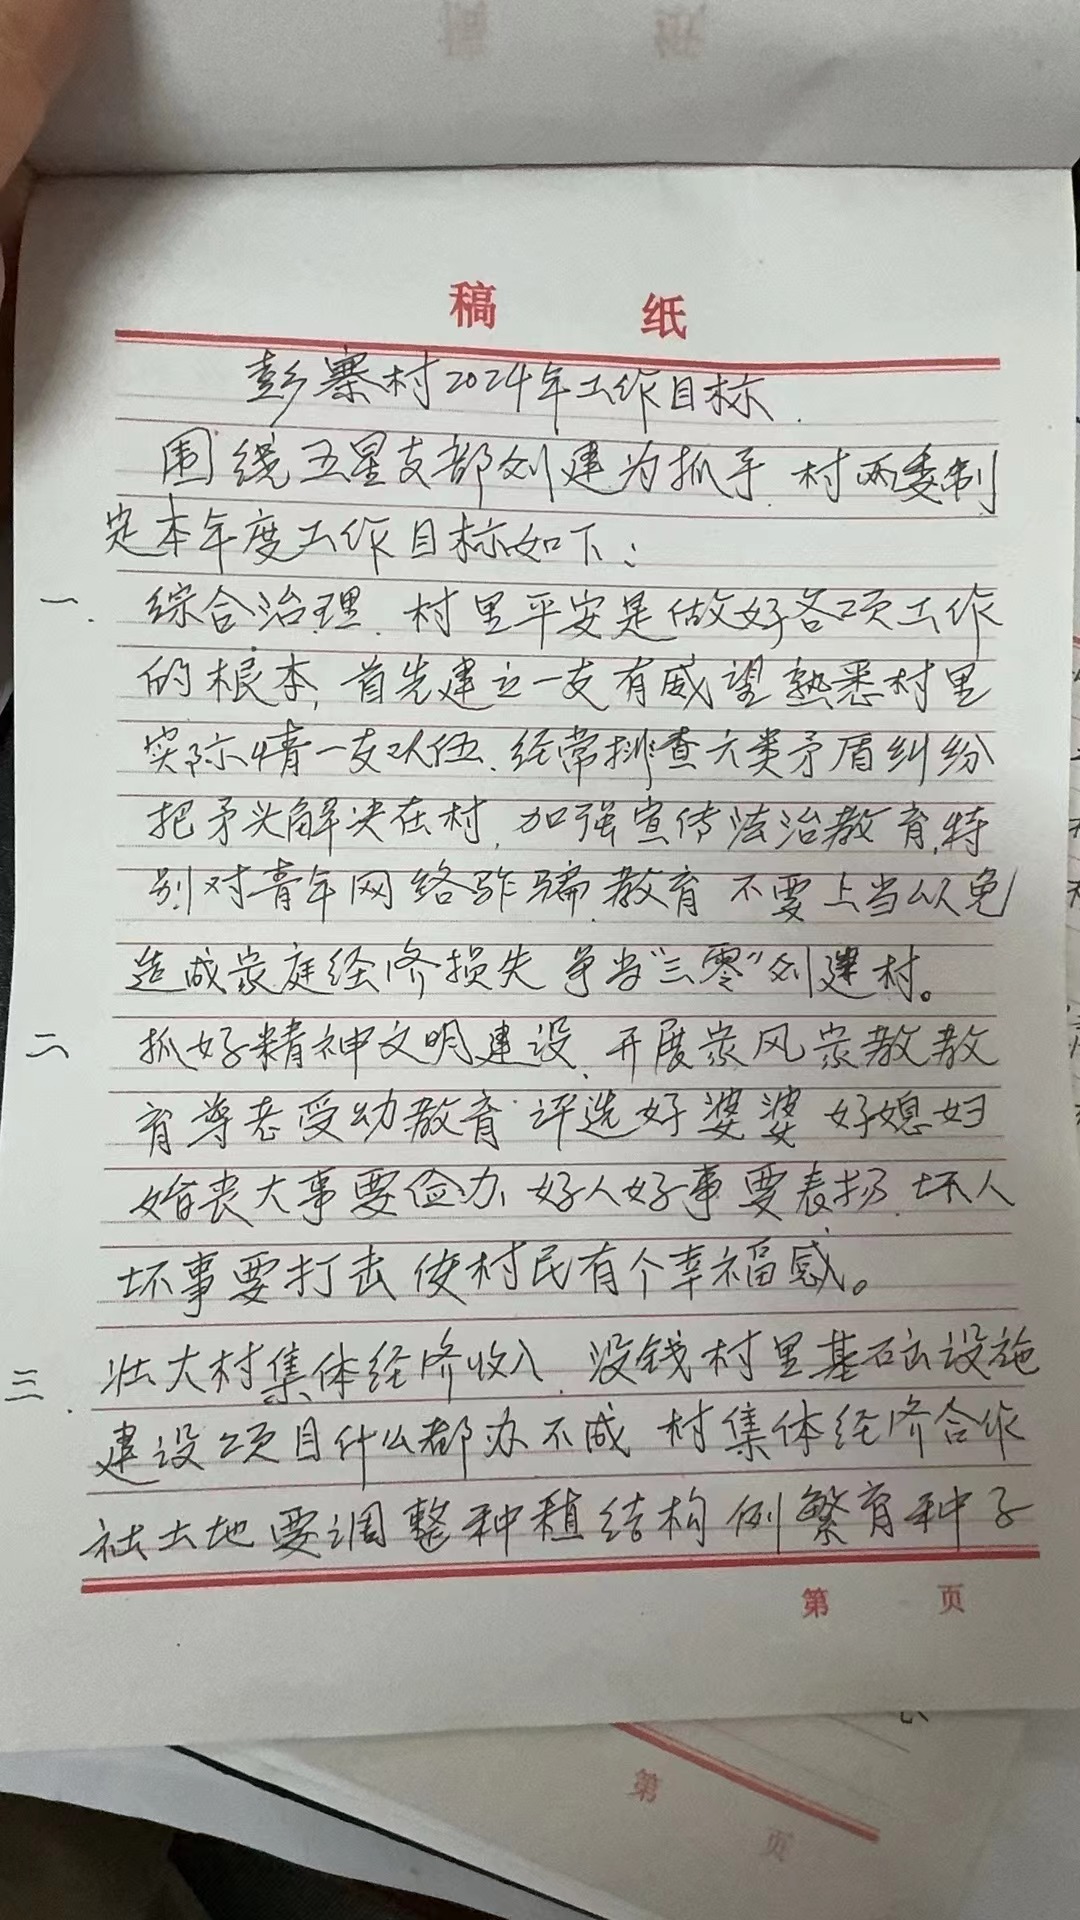 稿 纸
彭寨村2024年工作目标.
围绕五星支部创建为抓手.村两委制
定本年度工作目标如下:
一. 综合治理.村里平安是做好各项工作
的根本,首先建立一支有威望熟悉村里
实际情一支队伍.经常排查六类矛盾纠纷
把矛头解决在村,加强宣传法治教育,特
别对青年网络诈骗.教育 不要上当以免
造成家庭经济损失 争当"三零"创建村。
二 抓好精神文明建设.开展家风家教教
育尊老爱幼教育.评选好婆婆 好媳妇
婚丧大事要俭办.好人好事要表扬.坏人
坏事要打击 使村民有个幸福感。
三. 壮大村集体经济收入.没钱村里基础设施
建设项目什么都办不成 村集体经济合作
社土地要调整种植结构 例繁育种子
第 页
第 页